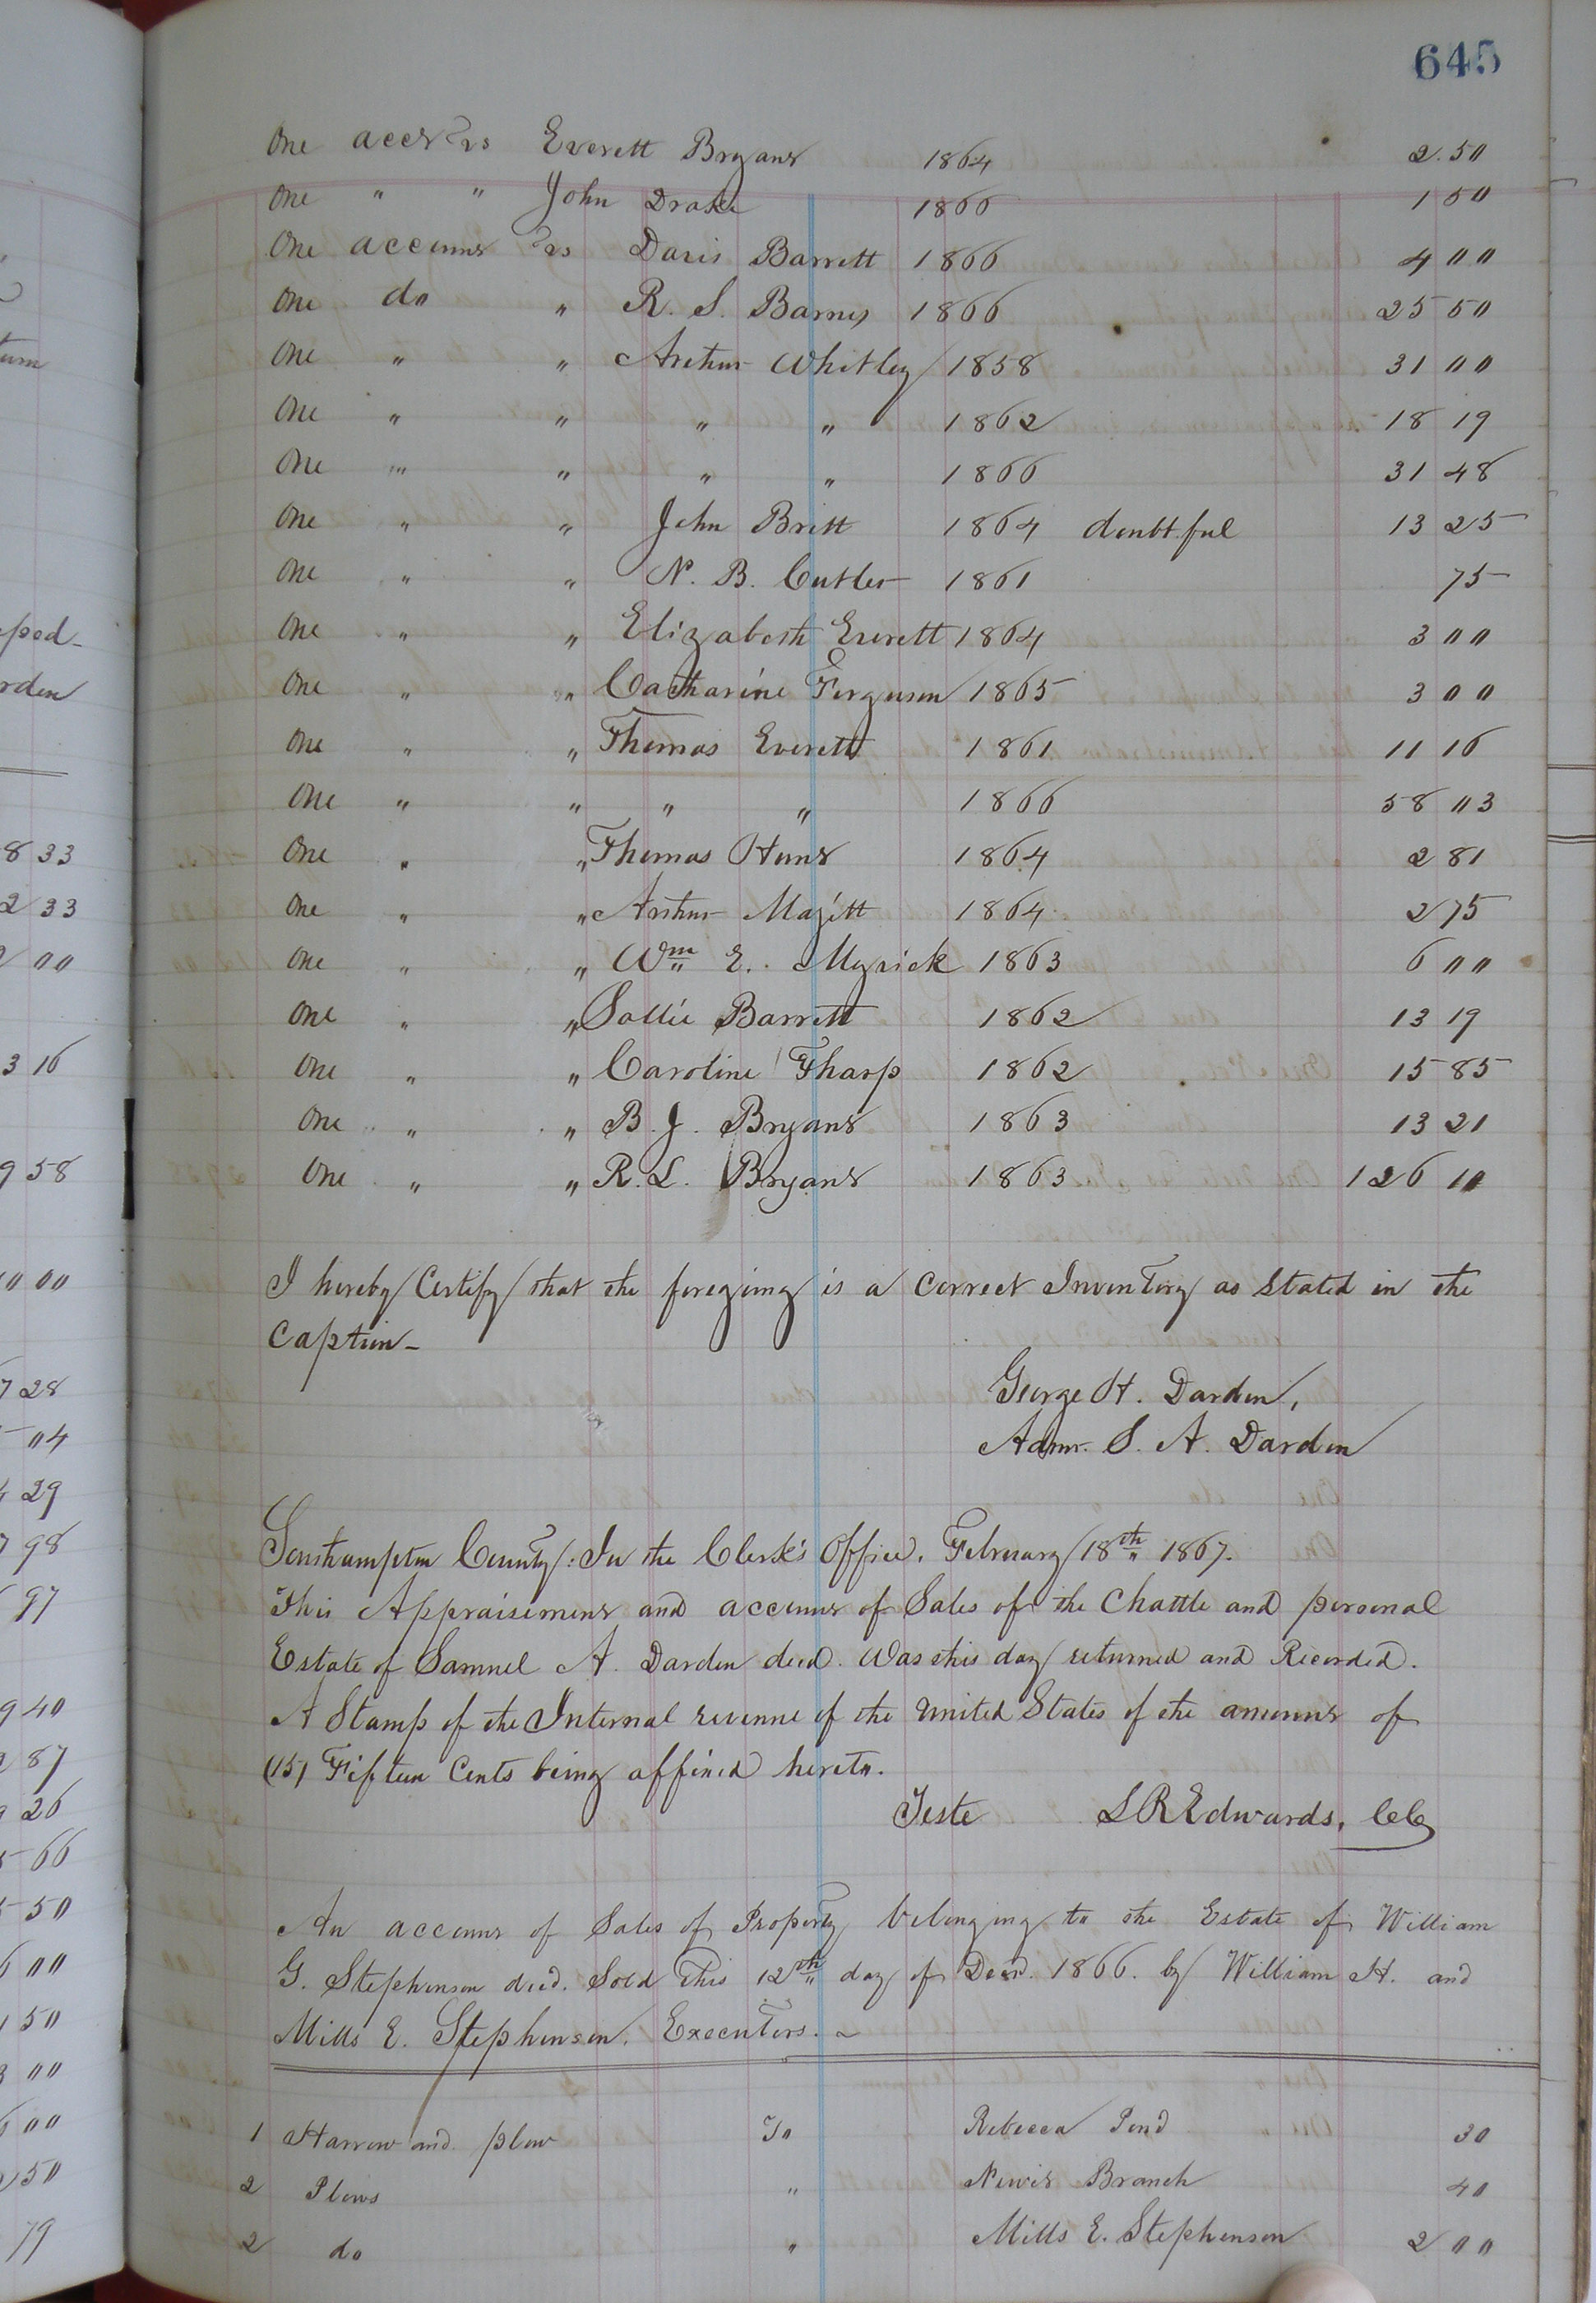 645
One acct vs Everett Bryant 1864 2.50
One " " John Drake 1866 1 50
One account vs Davis Barrett 1866 4 00
One do " R. S. Barnes 1866 25 50
One " " Arthur Whitley 1858 31 00
One " " " " 1862 18 19
One " " " " 1866 31 48
One " " John Britt 1864 doubtful 13 25
One " " N. B. Cutler 1861 75
One " " Elizabeth Everett 1864 3 00
One " " Catharine Ferguson 1865 3 00
One " " Thomas Everett 1861 11 16
One " " " " 1866 58 03
One " " Thomas Hunt 1864 2 81
One " " Arthur Majett 1864 2 75
One " " Wm E. Myrick 1863 6 00
One " " Sallie Barrett 1862 13 19
One " " Caroline Tharp 1862 15 85
One " " B. J. Bryant 1863 13 21
One " " R. L. Bryant 1863 126 10
I hereby Certify that the foregoing is a correct Inventory as Stated in the
Caption-
George H. Darden,
Admr. S. A. Darden
Southampton County: In the Clerk's Office, February 18th 1867.
This Appraisement and account of Sales of the Chattle and personal
Estate of Samuel A. Darden decd. Was this day returned and Recorded.
A Stamp of the Internal revenue of the United States of the amount of
(15) Fifteen Cents being affixed hereto.
Teste L R Edwards, CC
An account of Sales of Property belonging to the Estate of William
G. Stephenson decd. Sold This 12th day of Decr. 1866. by William H. and
Mills E. Stephenson, Executors.
1 Harrow and plow To Rebecca Pond 30
2 Plows " Newit Branch 40
2 do " Mills E. Stephenson 2 00
tum
rden
8 33
2 33
00
3 16
9 58
00 00
7 28
04
29
7 98
97
9 40
87
26
66
50
00
50
00
00
50
79